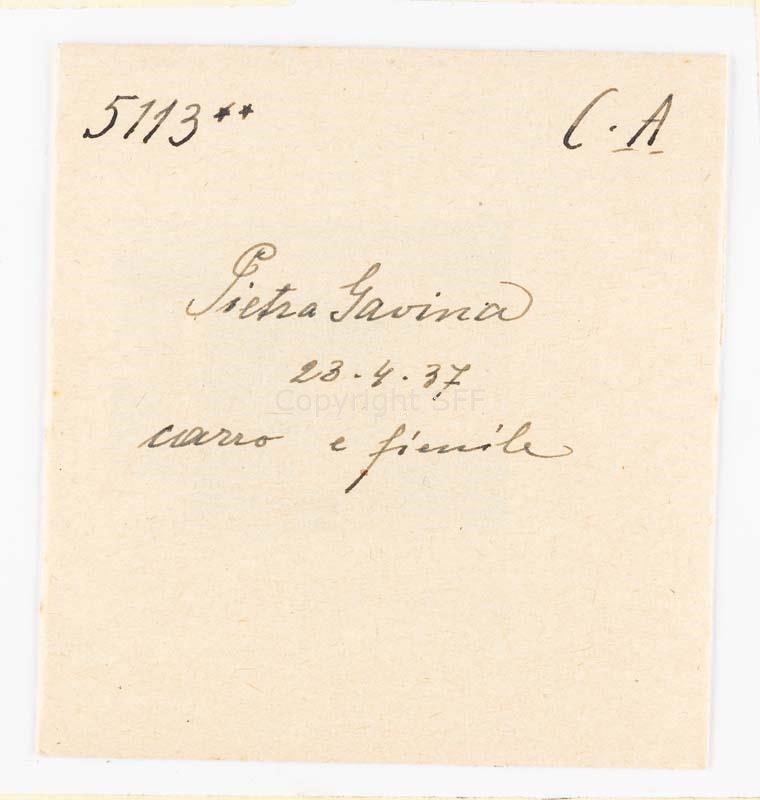 5113** C. A
Pietra Gavina
23.4.37
Copyright SFF
carro e fienile